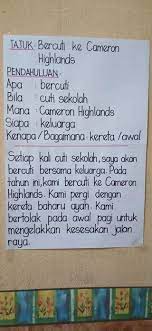 TAJUK: Bercuti ke Cameron
Highlands
PENDAHULUAN:
Apa : bercuti
Bila : cuti sekolah
Mana : Cameron Highlands
Siapa : keluarga
Kenapa/Bagaimana : kereta /awal
Setiap kali cuti sekolah, saya akan
bercuti bersama keluarga. Pada
tahun ini, kami bercuti ke Cameron
Highlands. Kami pergi dengan
kereta baharu ayah. Kami
bertolak pada awal pagi untuk
mengelakkan kesesakan jalan
raya.